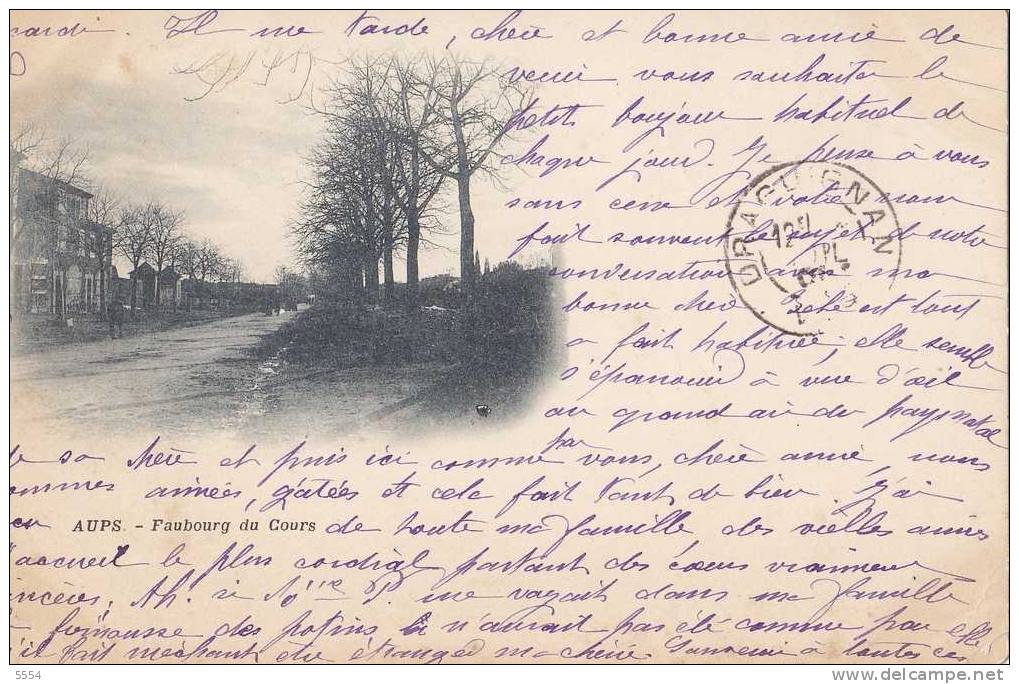 carde. Il me tarde, chère et bonne amie de
venir vous souhaiter le
petit bonjour habituel de
chaque jour. Je pense à vous
sans cesse et votre nom
fait souvent le sujet de notre
conversation avec ma
bonne chère est tout
a fait habituée, elle semble
s'épanouir à vue d'œil
au grand air du pays natal
de sa chère et puis ici comme par vous, chère amie, nous
sommes aimées, gâtées et cela fait tant de bien. J'ai
AUPS. - Faubourg du Cours
de toute ma famille, des vieilles amies
l'accueil le plus cordial partant des cœurs vraiment
sincères. Ah. si me voyait dans ma famille
des potins, n'aurait pas été comme par elle
fait méchant du étranger ma chérie. Souvenir à toutes ces
DRAGUIGNAN
5554